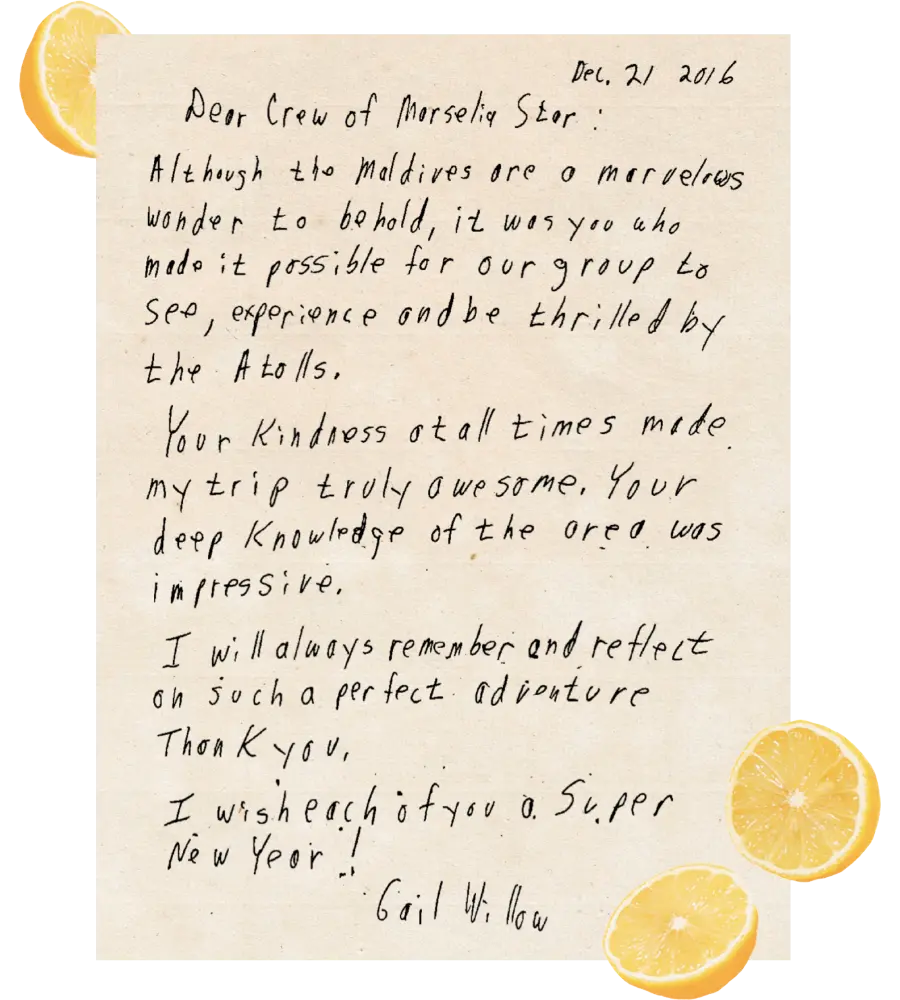 Dec. 21 2016
Dear Crew of Marselia Star:
Although the Maldives are a marvelous
wonder to behold, it was you who
made it possible for our group to
see, experience and be thrilled by
the Atolls.
Your Kindness at all times made
my trip truly awesome. Your
deep Knowledge of the area was
impressive.
I will always remember and reflect
on such a perfect adventure
Thank you,
I wish each of you a Super
New Year!
Gail Willow